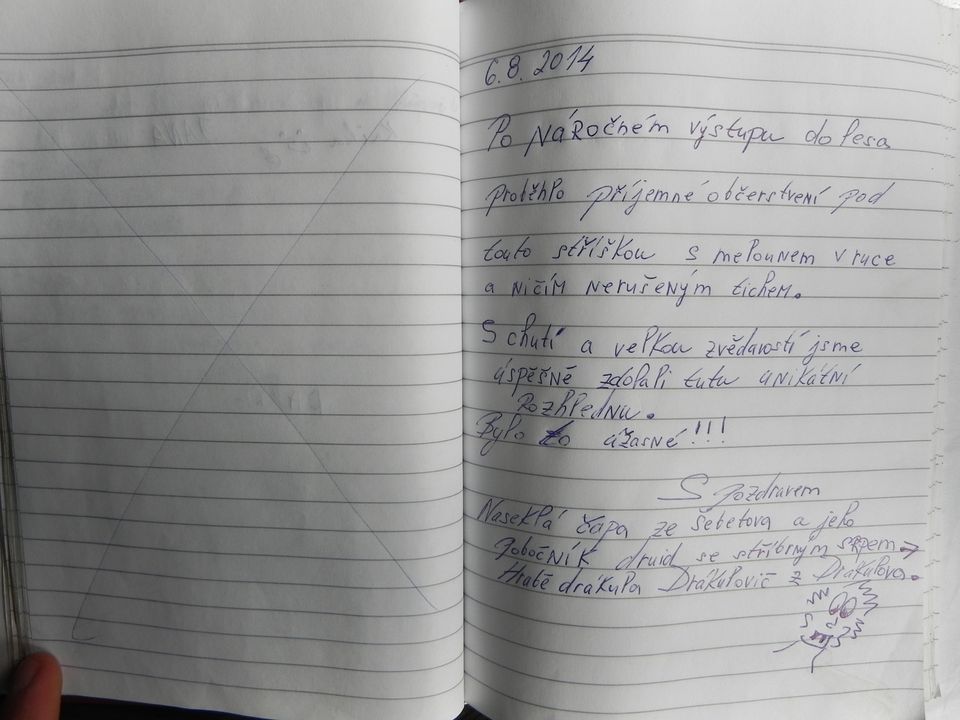 6.8. 2014
Po NÁROČNÉM výstupu do lesa
proběhlo příjemné občerstvení pod
touto stříškou s melounem v ruce
a ničím nerušeným tichem.
S chutí a velkou zvědavostí jsme
úspěšně zdolali tutu unikátní
Rozhlednu.
Bylo to úžasné!!!
S pozdravem
Naseklá čápa ze Šebetova a jeho
pobočník druid se stříbrným srpem →
Hrabě drákula Drákulovič z Drákulova.